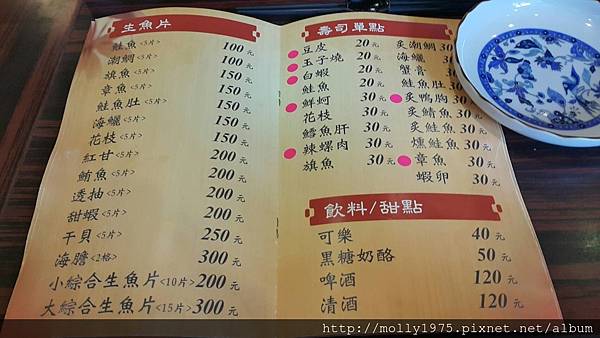 生魚片
鮭魚<5片> 100元
潮鯛<5片> 100元
旗魚<5片> 150元
章魚<5片> 150元
鮭魚肚<5片> 150元
海鱺<5片> 150元
花枝<5片> 150元
紅甘<5片> 200元
鮪魚<5片> 200元
透抽<5片> 200元
甜蝦<5片> 200元
干貝<5片> 250元
海膽<2格> 300元
小綜合生魚片<10片> 200元
大綜合生魚片<15片> 300元
壽司單點
豆皮 20元
玉子燒 20元
白蝦 20元
鮭魚 20元
鮮蚵 30元
花枝 30元
鱈魚肝 30元
辣螺肉 30元
旗魚 30元
炙潮鯛 30
海鱺 30
蟹膏 30
鮭魚肚 30
炙鴨胸 30
炙鯖魚 30元
炙鮭魚 30元
燻鮭魚 30元
章魚 30元
蝦卵 30元
飲料/甜點
可樂 40元
黑糖奶酪 50元
啤酒 120元
清酒 120元
http://molly1975.pixnet.net/album